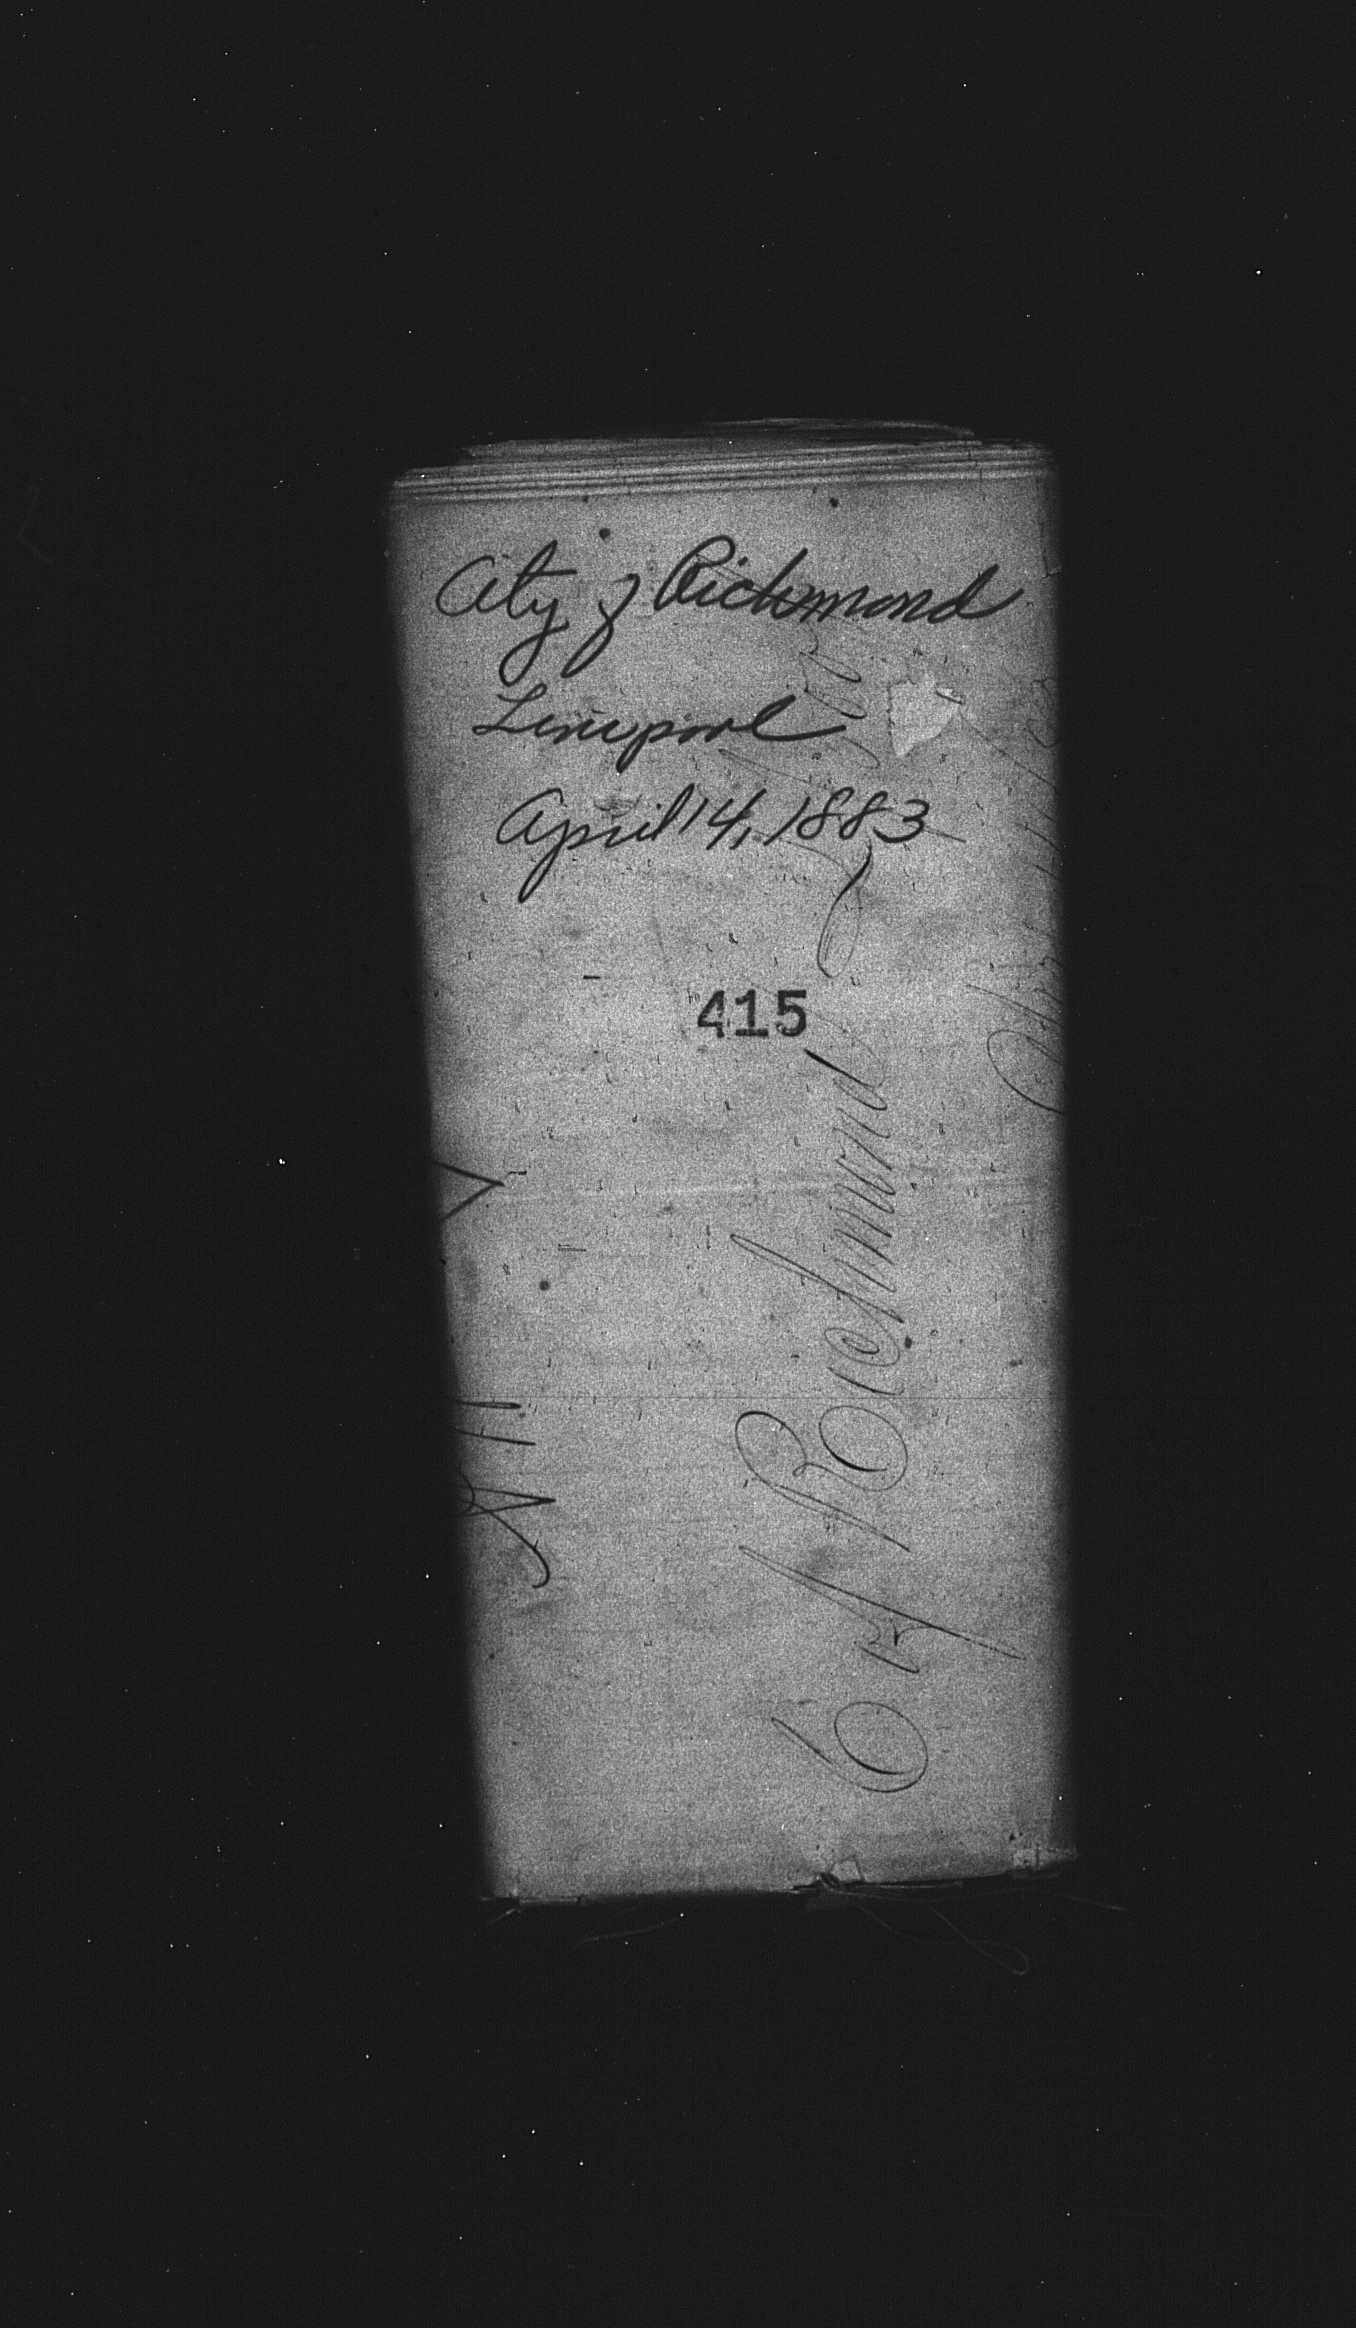 City of Richmond
Liverpool
April 14, 1883
415
C of Richmond